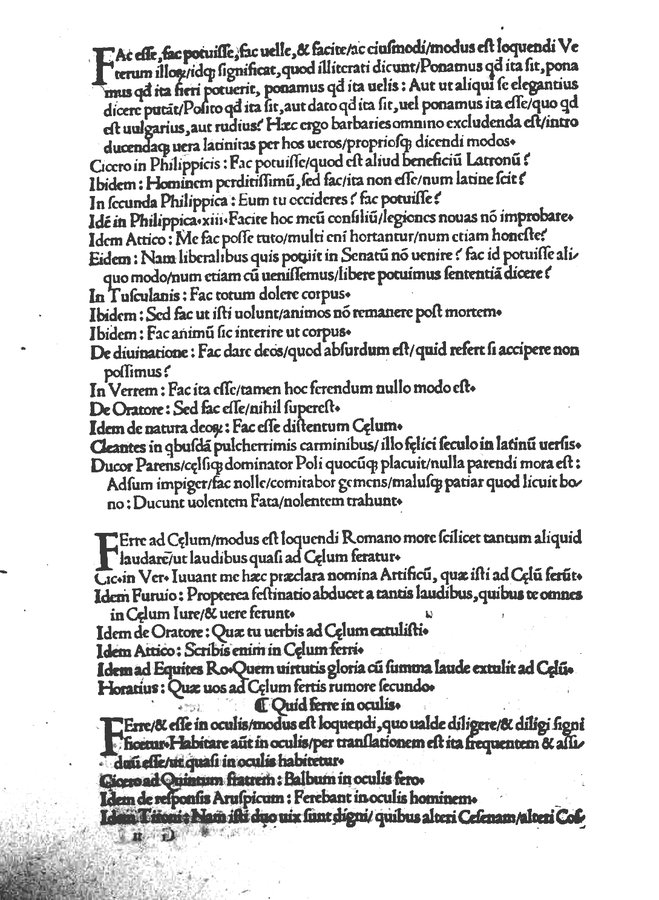 FAc esse, fac potuisse, fac uelle, & facite/ac eiusmodi/modus est loquendi Ve
terum illoꝝ/idqꝫ significat, quod illiterati dicunt/Ponamus qd̄ ita sit, pona
mus qd̄ ita fieri potuerit, ponamus qd̄ ita uelis : Aut ut aliqui se elegantius
dicere putāt/Posito qd̄ ita sit, aut dato qd̄ ita sit, uel ponamus ita esse/quo qd̄
est uulgarius, aut rudius? Hæc ergo barbaries omnino excludenda est/intro
ducendaqꝫ uera latinitas per hos ueros/propriosqꝫ dicendi modos.
Cicero in Philippicis : Fac potuisse/quod est aliud beneficiū Latronū?
Ibidem : Hominem perditissimū, sed fac/ita non esse/num latine scit?
In secunda Philippica : Eum tu occideres? fac potuisse?
Idē in Philippica.xiii.Facite hoc meū consiliū/legiones nouas nō improbare.
Idem Attico : Me fac posse tuto/multi eni hortantur/num etiam honeste?
Eidem : Nam liberalibus quis potuit in Senatū nō uenire? fac id potuisse ali/
quo modo/num etiam cū uenissemus/libere potuimus sententiā dicere?
In Tusculanis : Fac totum dolere corpus.
Ibidem : Sed fac ut isti uolunt/animos nō remanere post mortem.
Ibidem : Fac animū sic interire ut corpus.
De diuinatione : Fac dare deos/quod absurdum est/quid refert si accipere non
possimus?
In Verrem : Fac ita esse/tamen hoc ferendum nullo modo est.
De Oratore : Sed fac esse/nihil superest.
Idem de natura deoꝝ : Fac esse distentum Cęlum.
Cleantes in qbusdā pulcherrimis carminibus/ illo fęlici seculo in latinū uersis.
Ducor Parens/cęlsiqꝫ dominator Poli quocūqꝫ placuit/nulla parendi mora est :
Adsum impiger/fac nolle/comitabor gemens/malusqꝫ patiar quod licuit bo/
no : Ducunt uolentem Fata/nolentem trahunt.
FErre ad Cęlum/modus est loquendi Romano more scilicet tantum aliquid
laudare/ut laudibus quasi ad Cęlum feratur.
Cic.in Ver. Iuuant me hæc præclara nomina Artificū, quæ isti ad Cęlū ferūt.
Idem Furuio : Propterea festinatio abducet a tantis laudibus, quibus te omnes
in Cęlum Iure/& uere ferunt.
Idem de Oratore : Quæ tu uerbis ad Cęlum extulisti.
Idem Attico : Scribis enim in Cęlum ferri.
Idem ad Equites Ro.Quem uirtutis gloria cū summa laude extulit ad Cęlū.
Horatius : Quæ uos ad Cęlum fertis rumore secundo.
¶ Quid ferre in oculis.
FErre/& esse in oculis/modus est loquendi, quo ualde diligere/& diligi signi
ficetur.Habitare aūt in oculis/per translationem est ita frequentem & assi/
duū esse/ut quasi in oculis habitetur.
Cicero ad Quintum fratrem : Balbum in oculis fero.
Idem de responsis Aruspicum : Ferebant in oculis hominem.
Idem Tironi : Nam isti duo uix sunt digni/ quibus alteri Cesenam/alteri Cos/
G ii